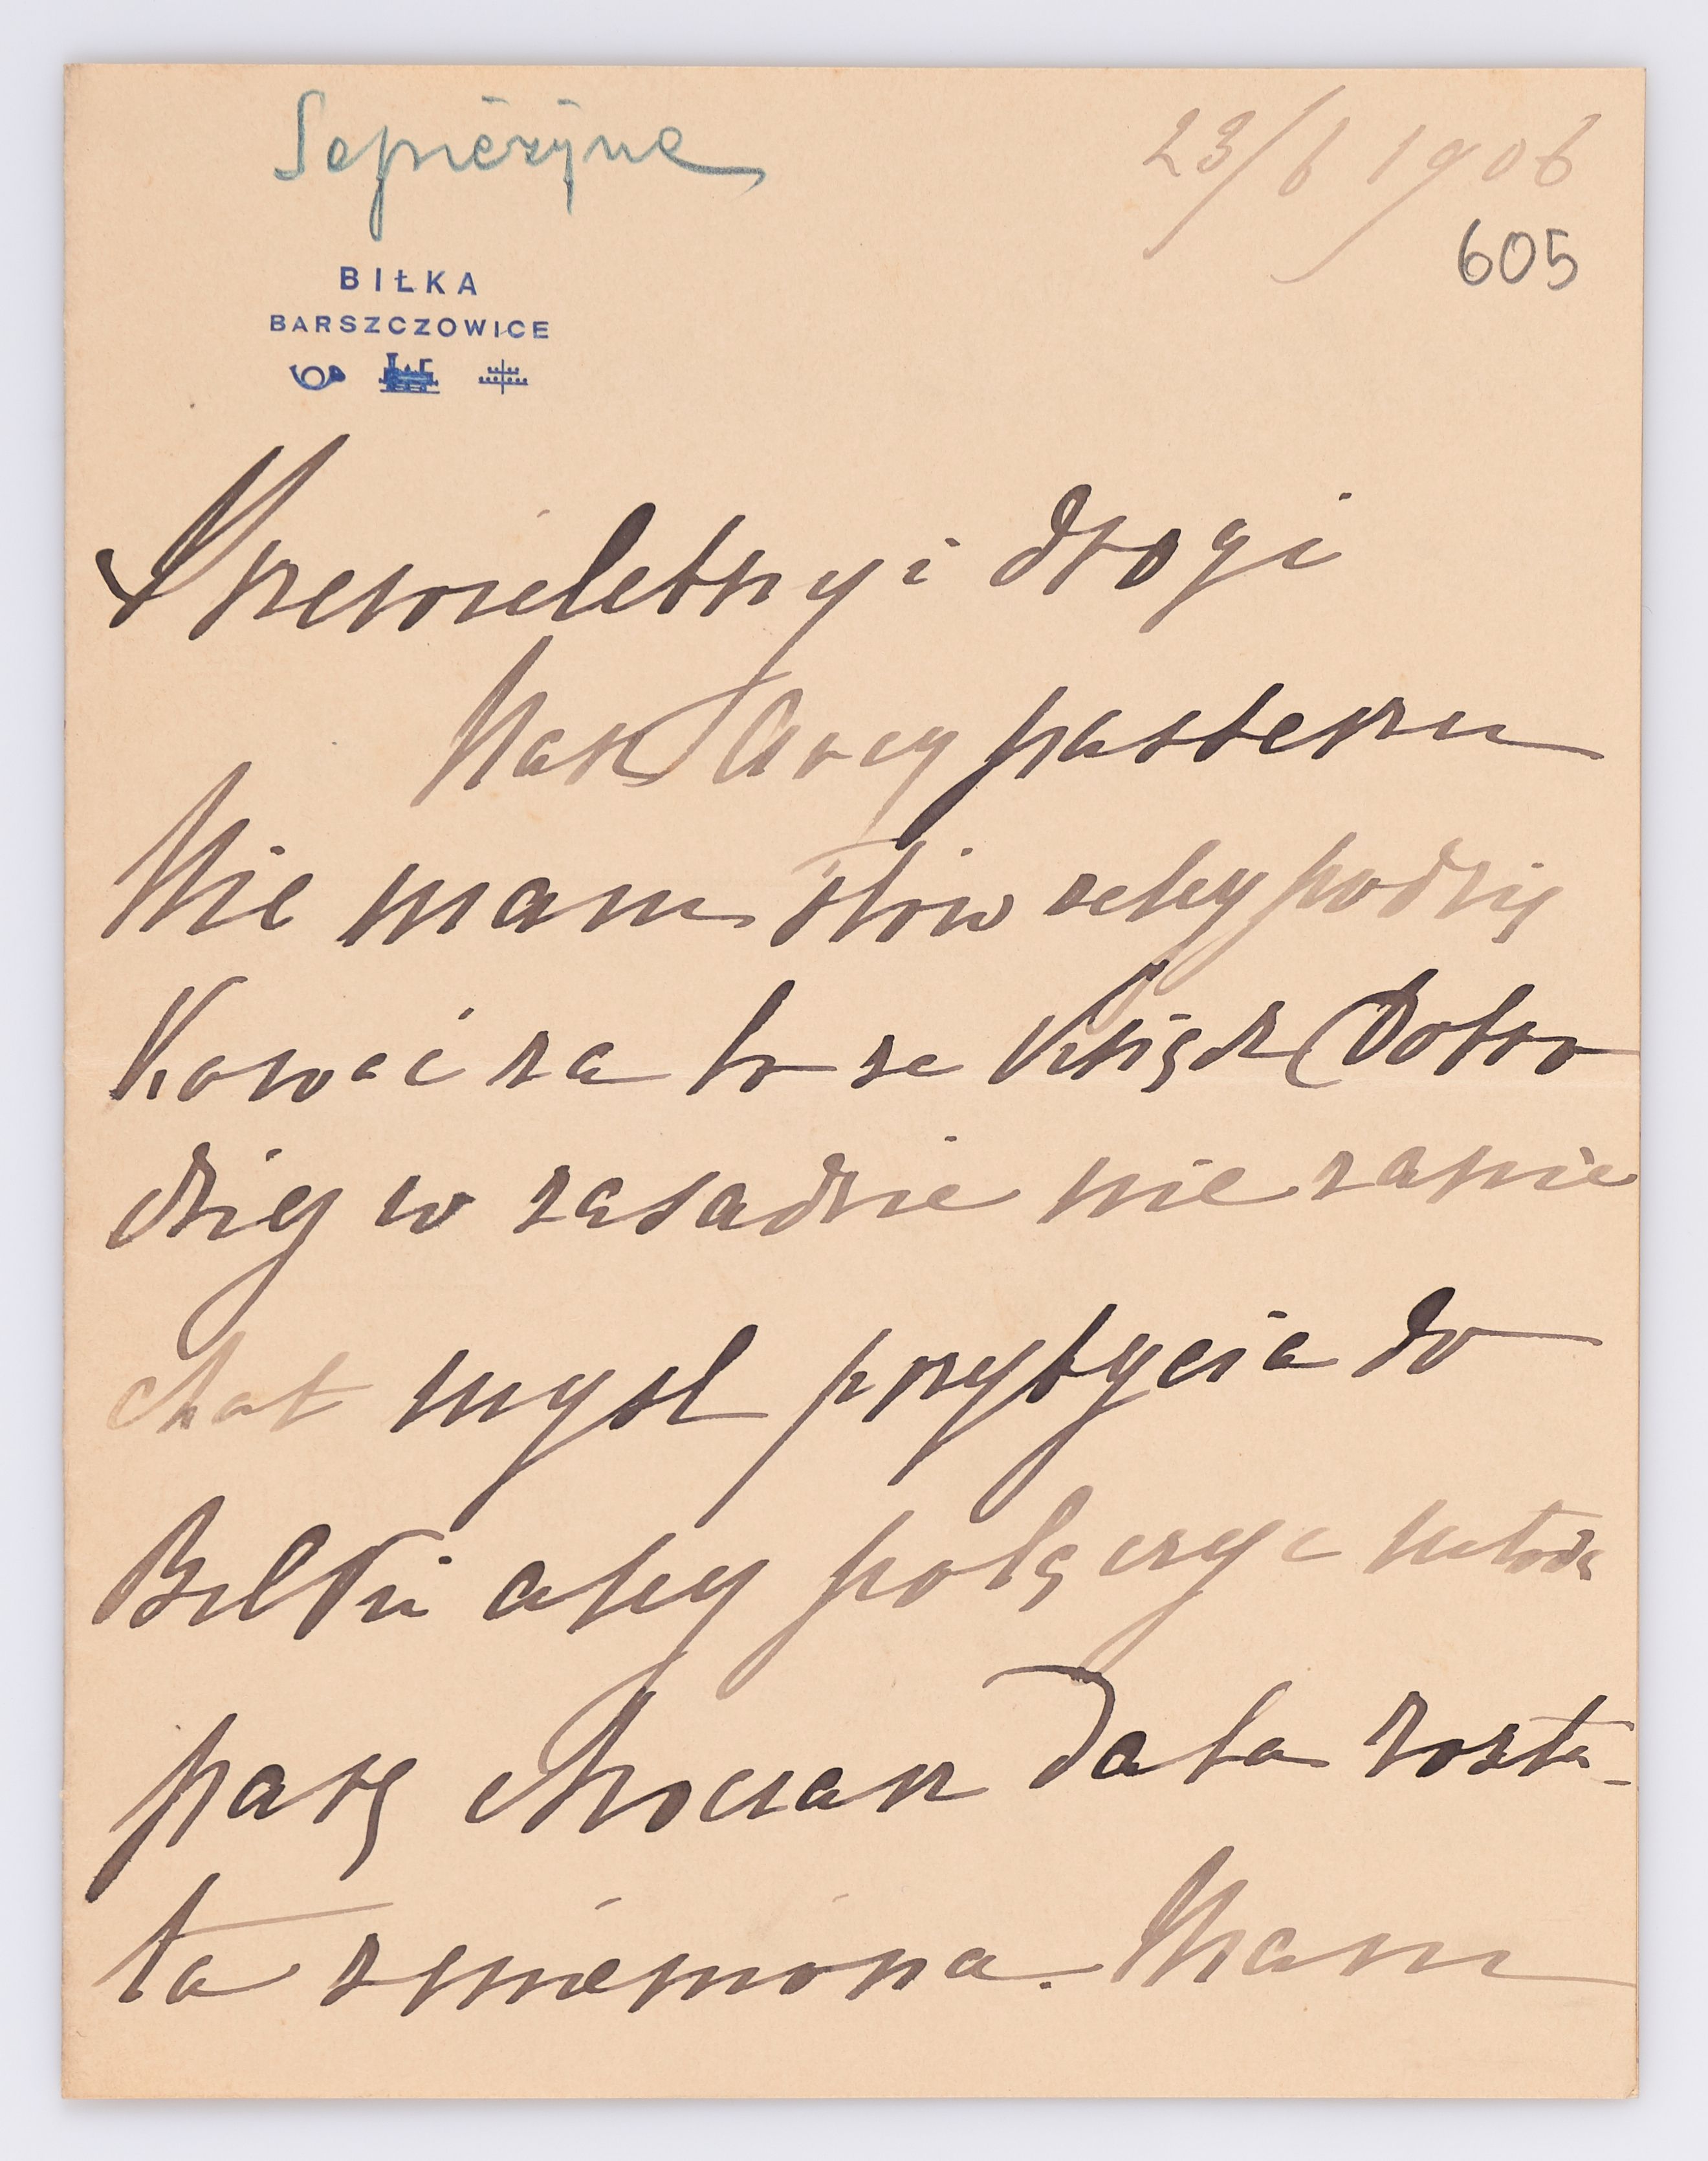 Sapieżyna
23/6 1906
605
BIŁKA
BARSZCZOWICE
Przewielebny i drogi
Nasz Arcypasterzu
Nie mam słów zeby podzię
kować za to ze Ksiądz Dobro
dziej w zasadzie nie zanie
chał mysl przybycia do
Biłki aby połączyc młodą
parę chociaz data zosta-
ła zmieniona. Mam